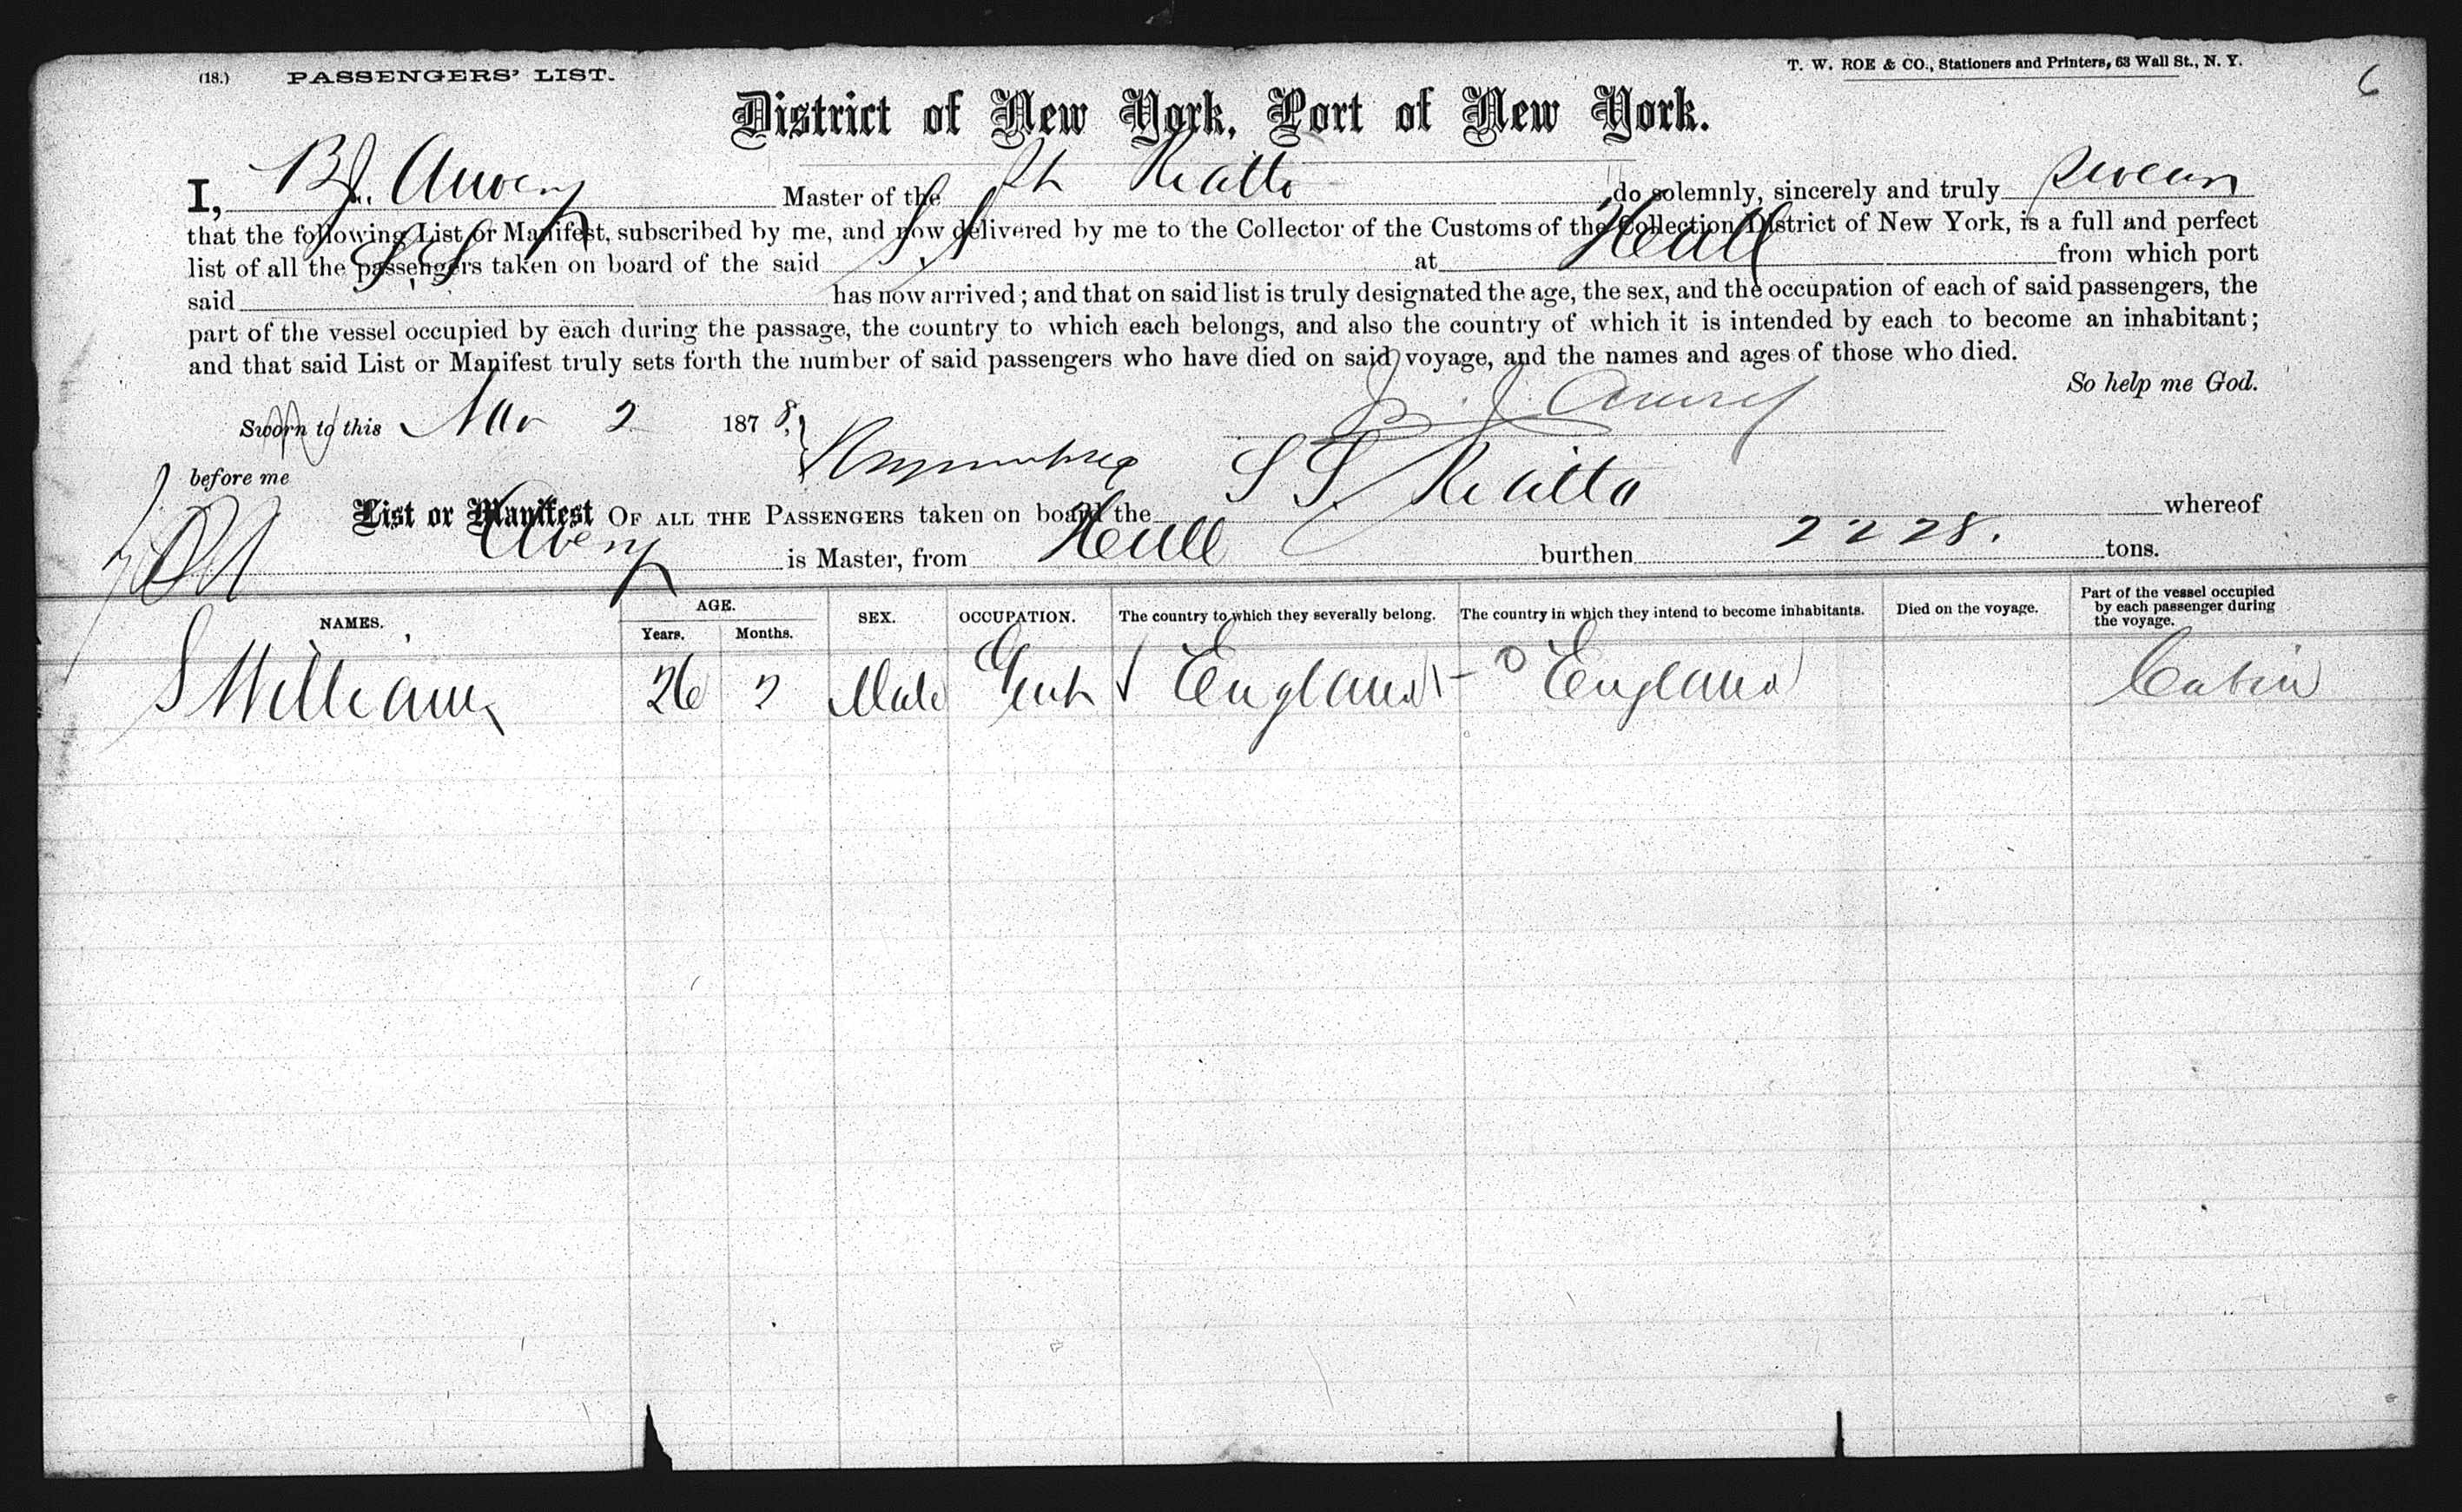 (18.) PASSENGERS' LIST.
T. W. ROE & CO., Stationers and Printers, 63 Wall St., N. Y.
6
District of New York, Port of New York.
I, B.J. Avery Master of the SS Rialto do solemnly, sincerely and truly swear
that the following List or Manifest, subscribed by me, and now delivered by me to the Collector of the Customs of the Collection District of New York, is a full and perfect
list of all the passengers taken on board of the said SS at Hull from which port
said SS has now arrived; and that on said list is truly designated the age, the sex, and the occupation of each of said passengers, the
part of the vessel occupied by each during the passage, the country to which each belongs, and also the country of which it is intended by each to become an inhabitant;
and that said List or Manifest truly sets forth the number of said passengers who have died on said voyage, and the names and ages of those who died.
So help me God.
Sworn to this Mar 2 1878,
B. J. Avery
before me
List or Manifest OF ALL THE PASSENGERS taken on board the SS Rialto whereof
Avery is Master, from Hull burthen 2228. tons.
NAMES. AGE. Years. Months. SEX. OCCUPATION. The country to which they severally belong. The country in which they intend to become inhabitants. Died on the voyage. Part of the vessel occupied by each passenger during the voyage.
S Williams 26 2 Male Gent England England Cabin